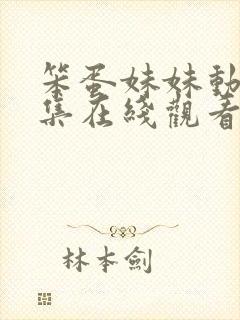 笨蛋妹妹動
集在綫觀看
林本劍